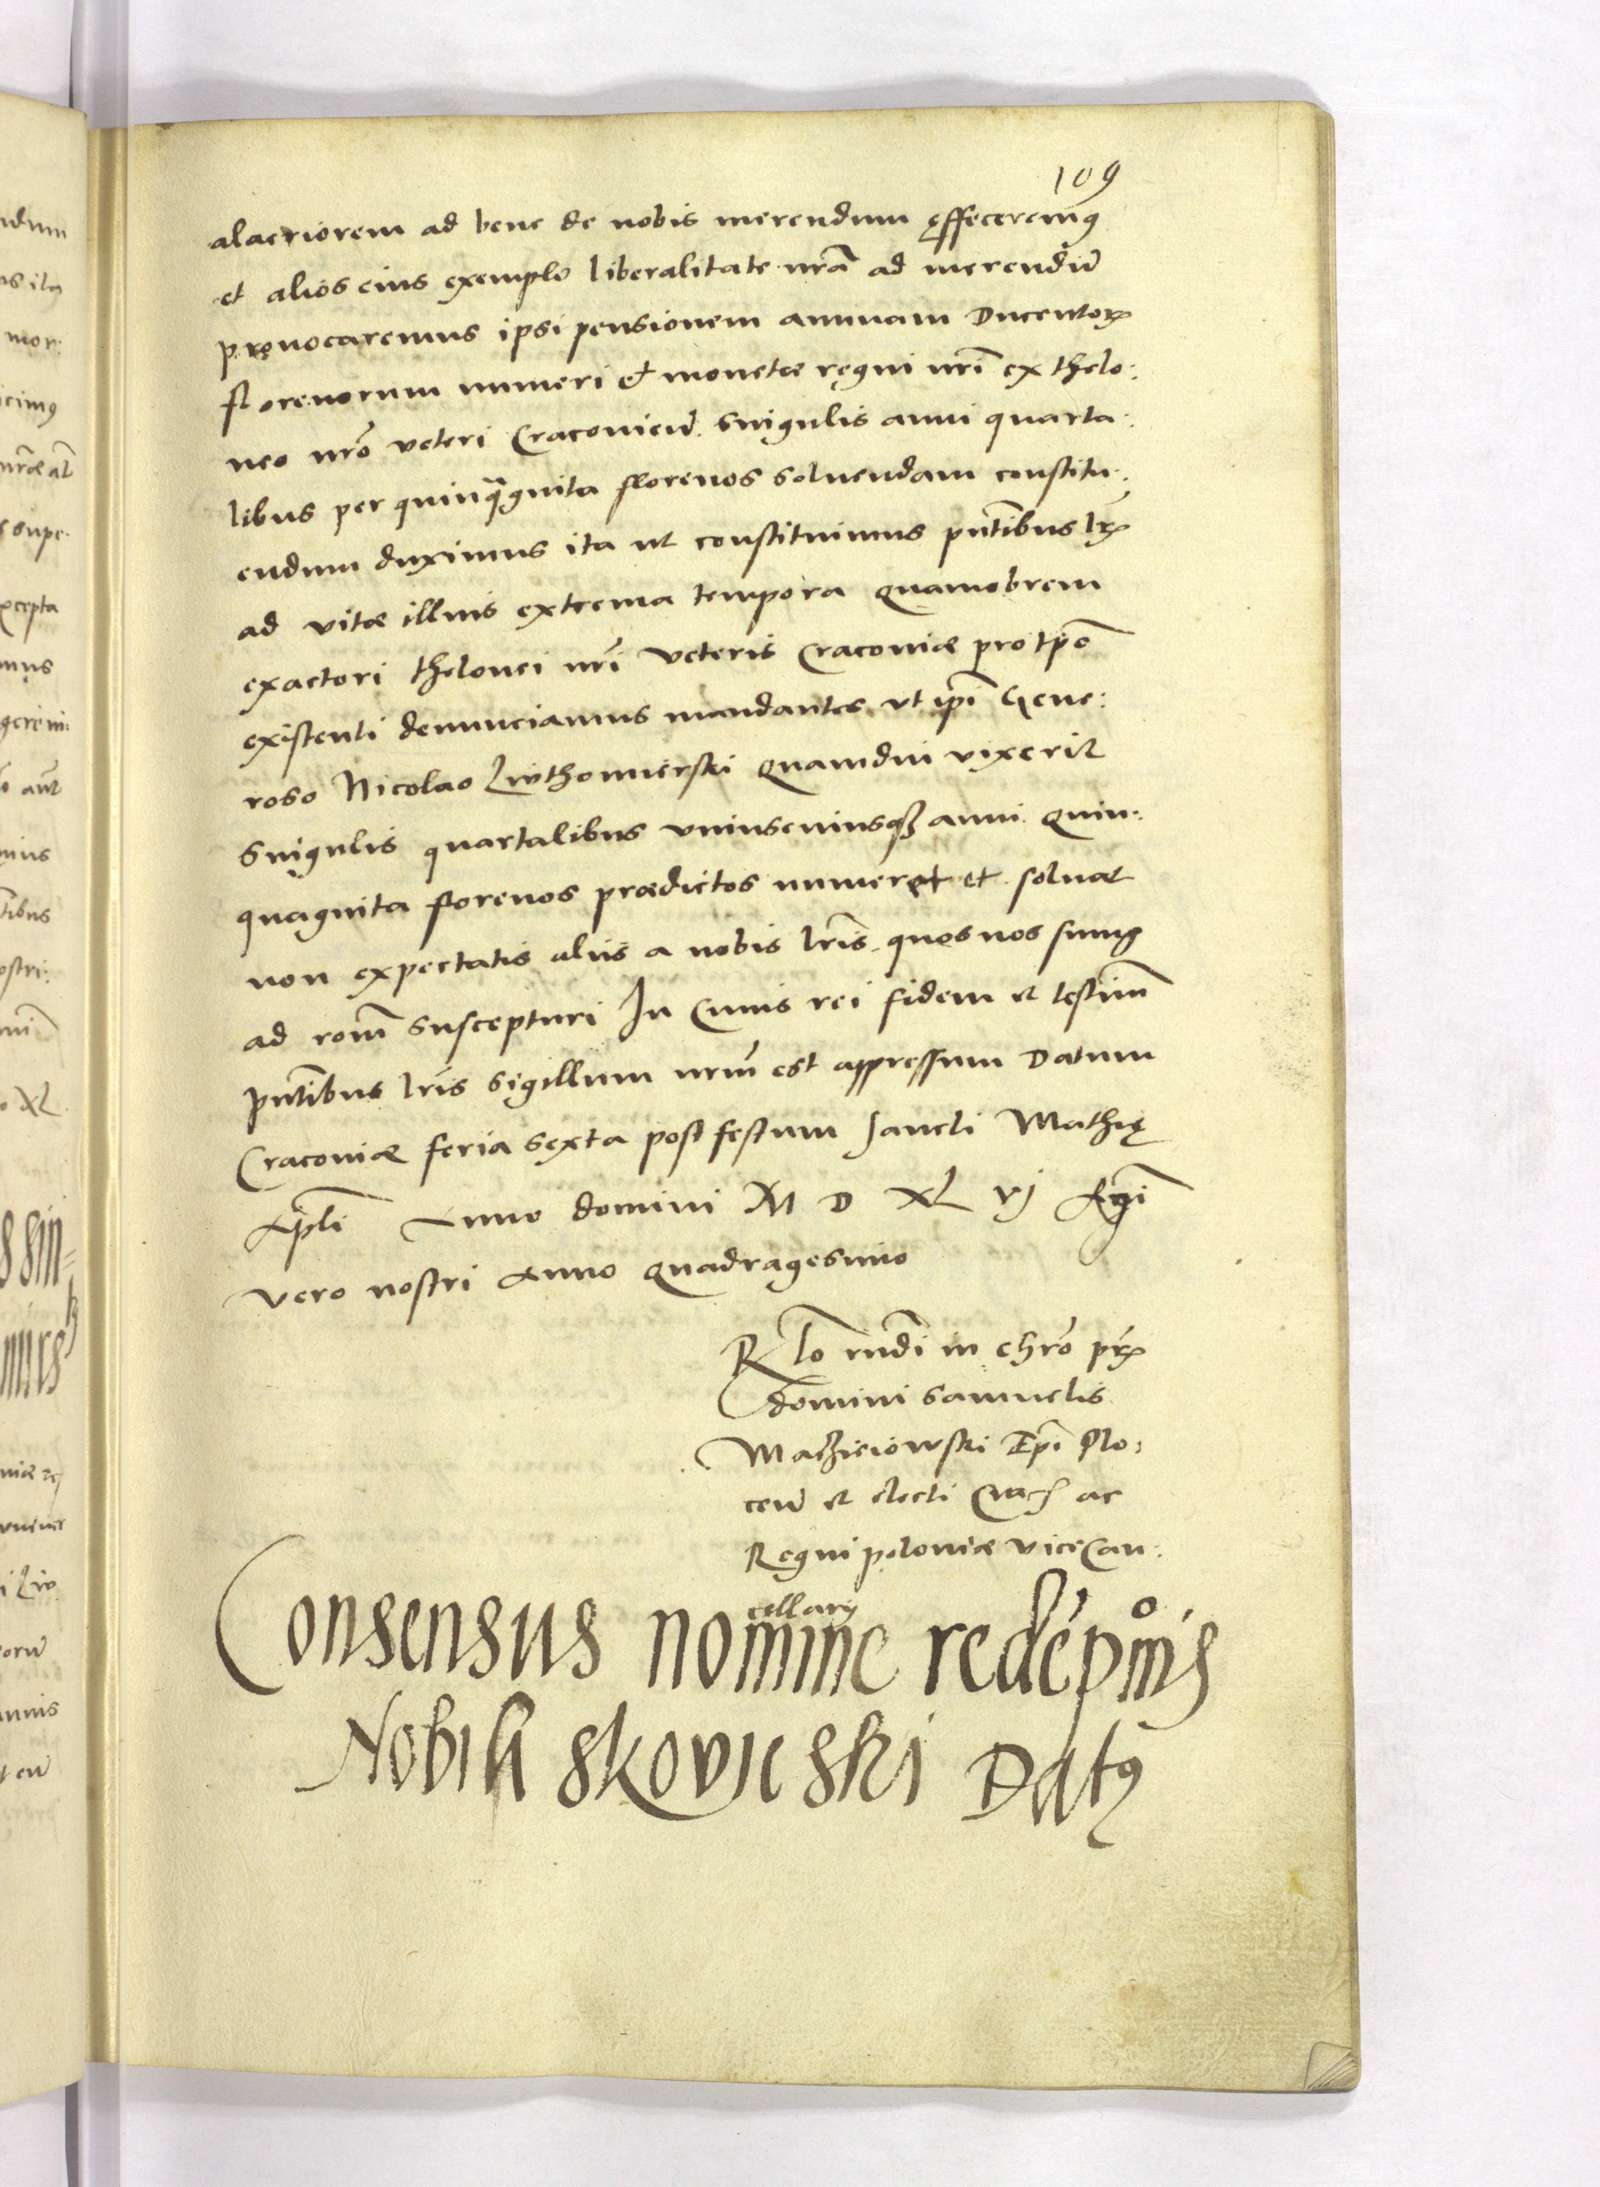 109
alacriorem ad bene de nobis merendum effeceremꝰ
et alios eius exemplo liberalitate nr̃a ad merendũ
prouocaremus ipsi pensionem annuam Ducentorꝝ
florenorum numeri et monetæ ręgni nr̃i ex thelo:
neo nr̃o veteri Cracovieñ. Singulis anni quarta:
libus per quinquaginta florenos soluendam constitu:
endum duximus ita ut constituimus pñtibus lr̃is
ad vitæ illius extrema tempora Quamobrem
exactori thelonei nr̃i Veteris Cracoviæ pro tp̃e
existenti denunciamus mandantes vt ip̃i Gene:
roso Nicolao Liuthomierski Quamdiu vixerit
Singulis quartalibus vniuscuiusqꝫ anni Quin:
quaginta florenos prædictos numeret et soluat
non expectatis aliis a nobis lr̃is. quos nos sumꝰ
ad rom̃ suscepturi In Cuius rei fidem et testim̃
pñtibus lr̃is sigillum nr̃m est appressum Datum
Cracoviæ feria sexta post festum sancti Mathię
Ap̃li Anno domini M D XL vj Rg̃ni
vero nostri Anno Quadragesimo
R̃lo rṽdi in chr̃o pr̃is
domini Samuelis
Maczieiowski Ep̃i Plo:
ceñ et electi Crac̃ ac
Regni poloniæ viceCan:
cellarij
Consensus nomine redẽpt̊nis
Nobili Skovieski Datꝰ